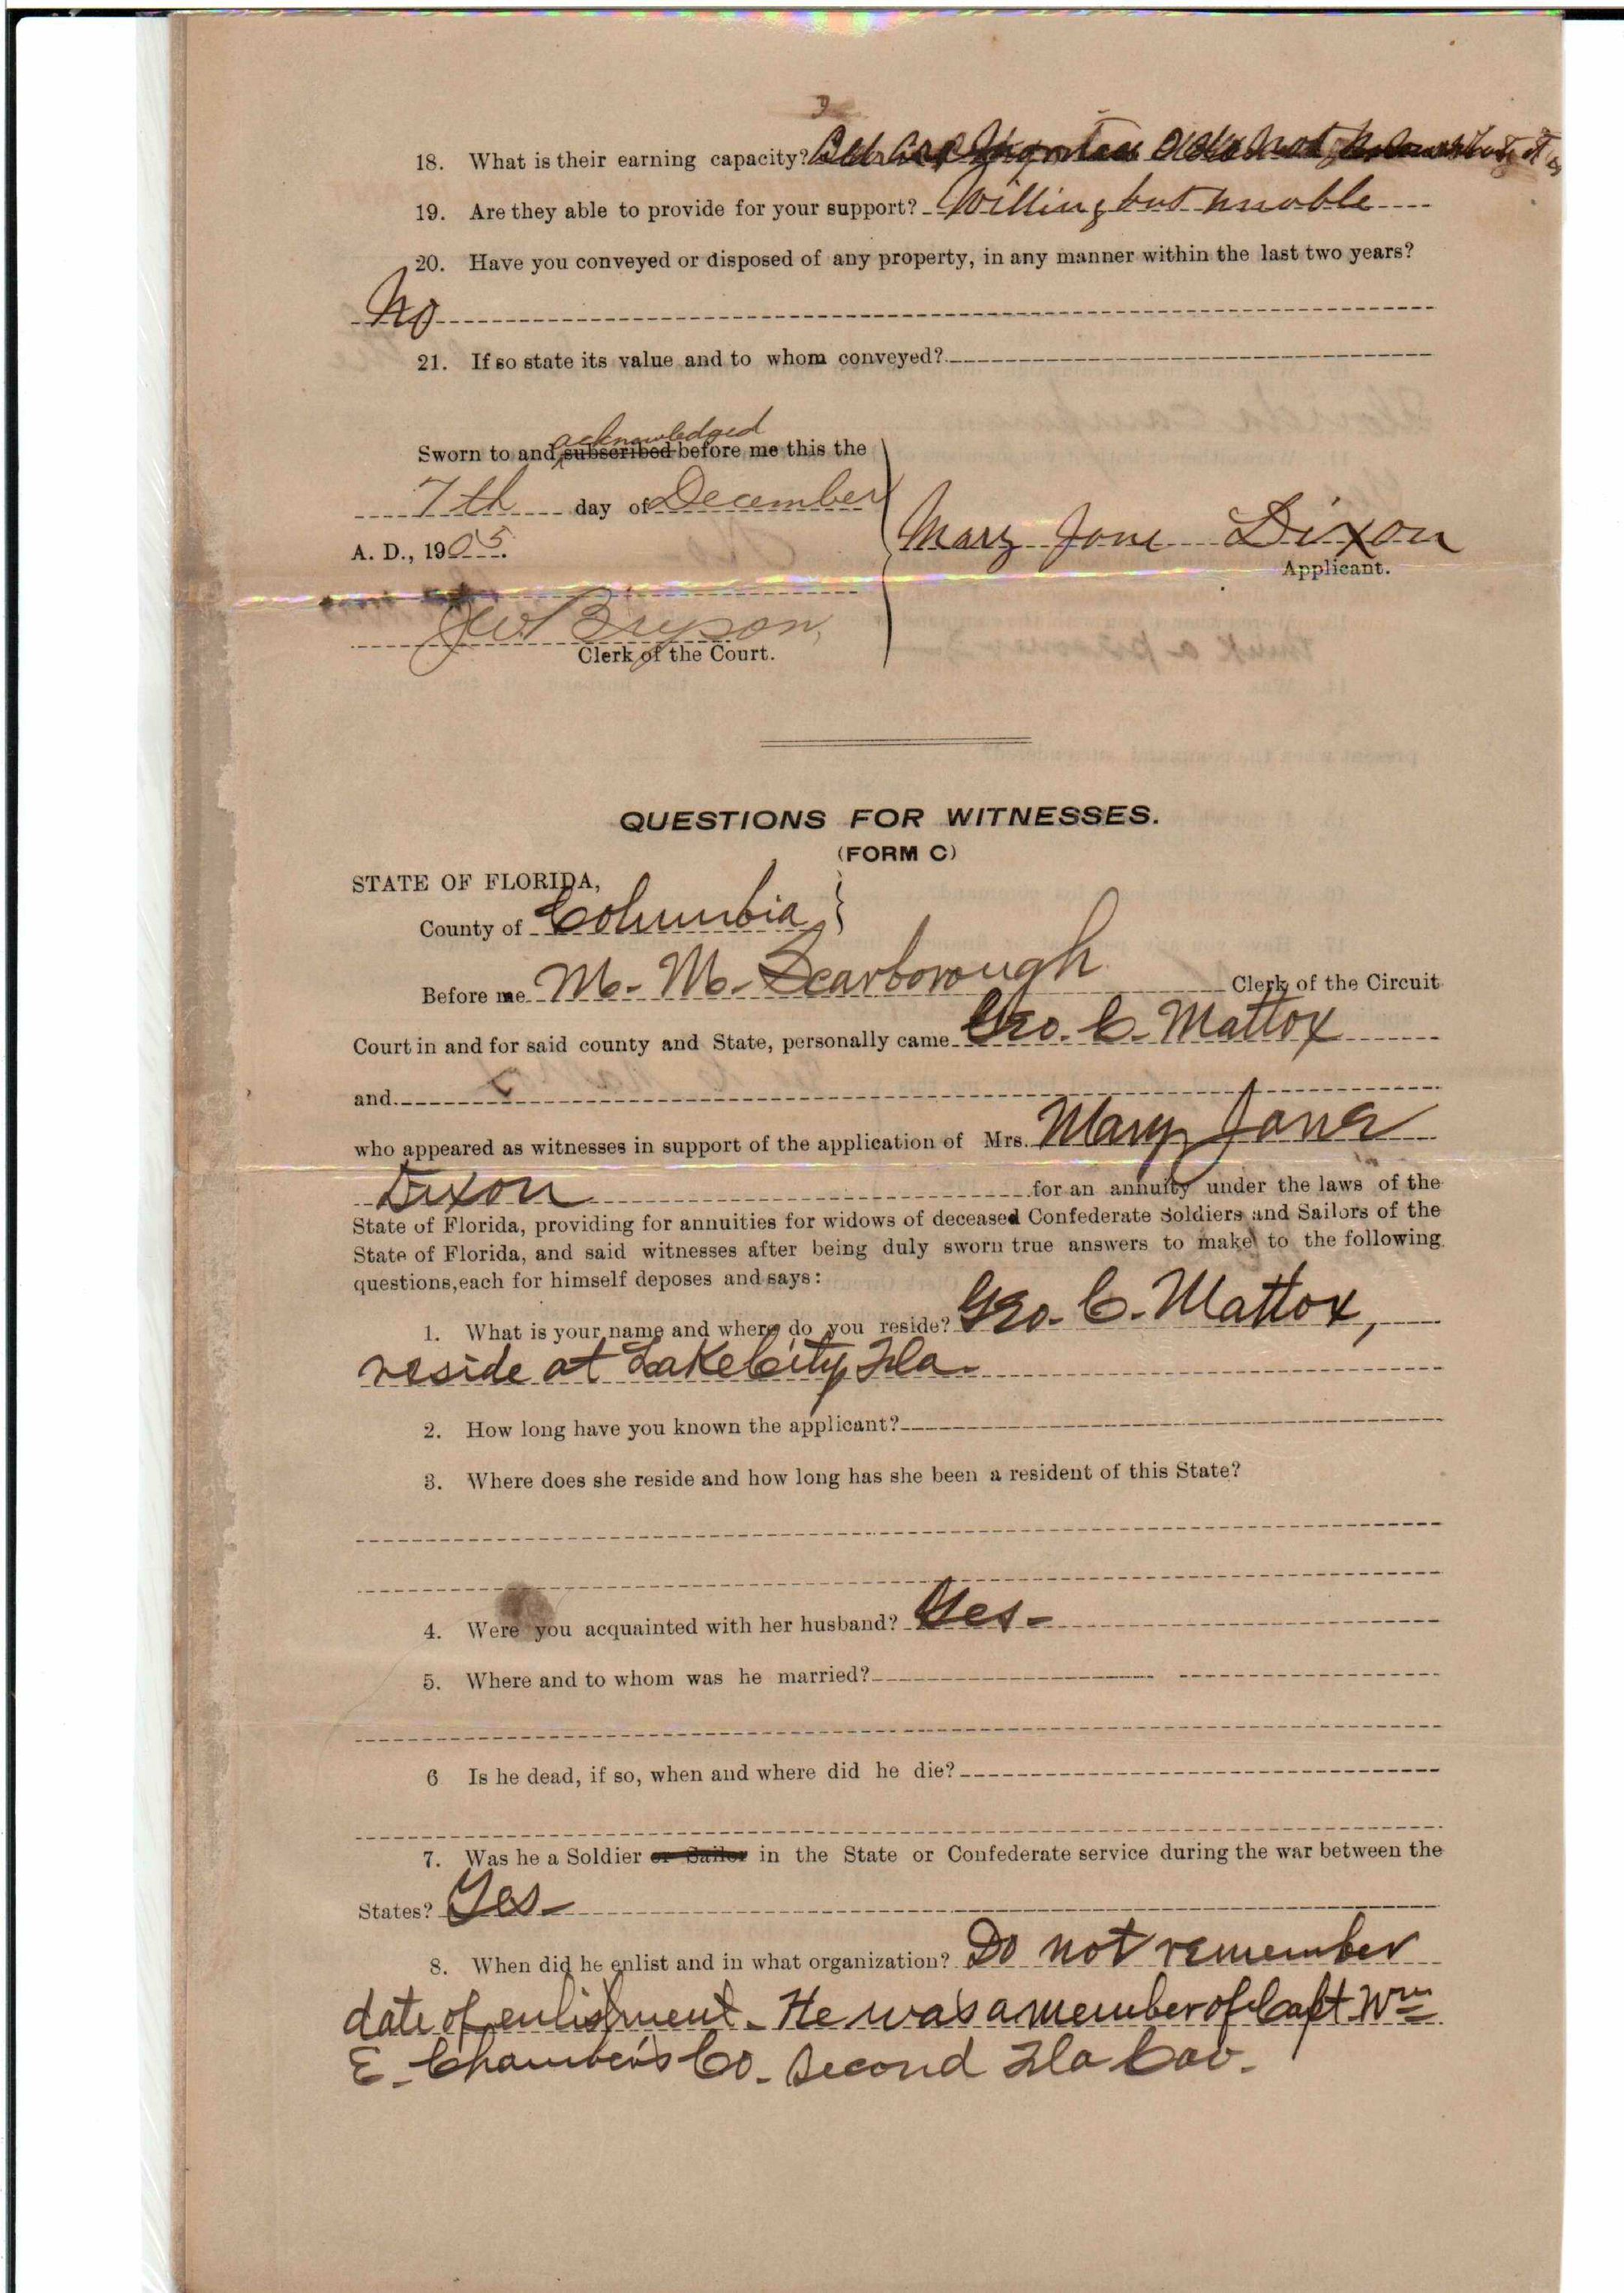 18. What is their earning capacity?
19. Are they able to provide for your support? Willing but unable
20. Have you conveyed or disposed of any property, in any manner within the last two years?
No
21. If so state its value and to whom conveyed?
acknowledged
Sworn to and subscribed before me this the
7th day of December
A. D., 1905.
Mary Jane Dixon
Applicant.
J W Bryson,
Clerk of the Court.
QUESTIONS FOR WITNESSES.
(FORM C)
STATE OF FLORIDA,
County of Columbia
Before me M. M. Scarborough Clerk of the Circuit
Court in and for said county and State, personally came Geo. C. Mattox
and
who appeared as witnesses in support of the application of Mrs. Mary Jane
Dixon for an annuity under the laws of the
State of Florida, providing for annuities for widows of deceased Confederate Soldiers and Sailors of the
State of Florida, and said witnesses after being duly sworn true answers to make to the following
questions, each for himself deposes and says:
1. What is your name and where do you reside? Geo. C. Mattox,
reside at Lake City, Fla.
2. How long have you known the applicant?
3. Where does she reside and how long has she been a resident of this State?
4. Were you acquainted with her husband? Yes-
5. Where and to whom was he married?
6 Is he dead, if so, when and where did he die?
7. Was he a Soldier or Sailor in the State or Confederate service during the war between the
States? Yes-
8. When did he enlist and in what organization? Do not remember
date of enlishment. He was a member of Capt Wm
E. Chamber's Co. Second Fla Cav.